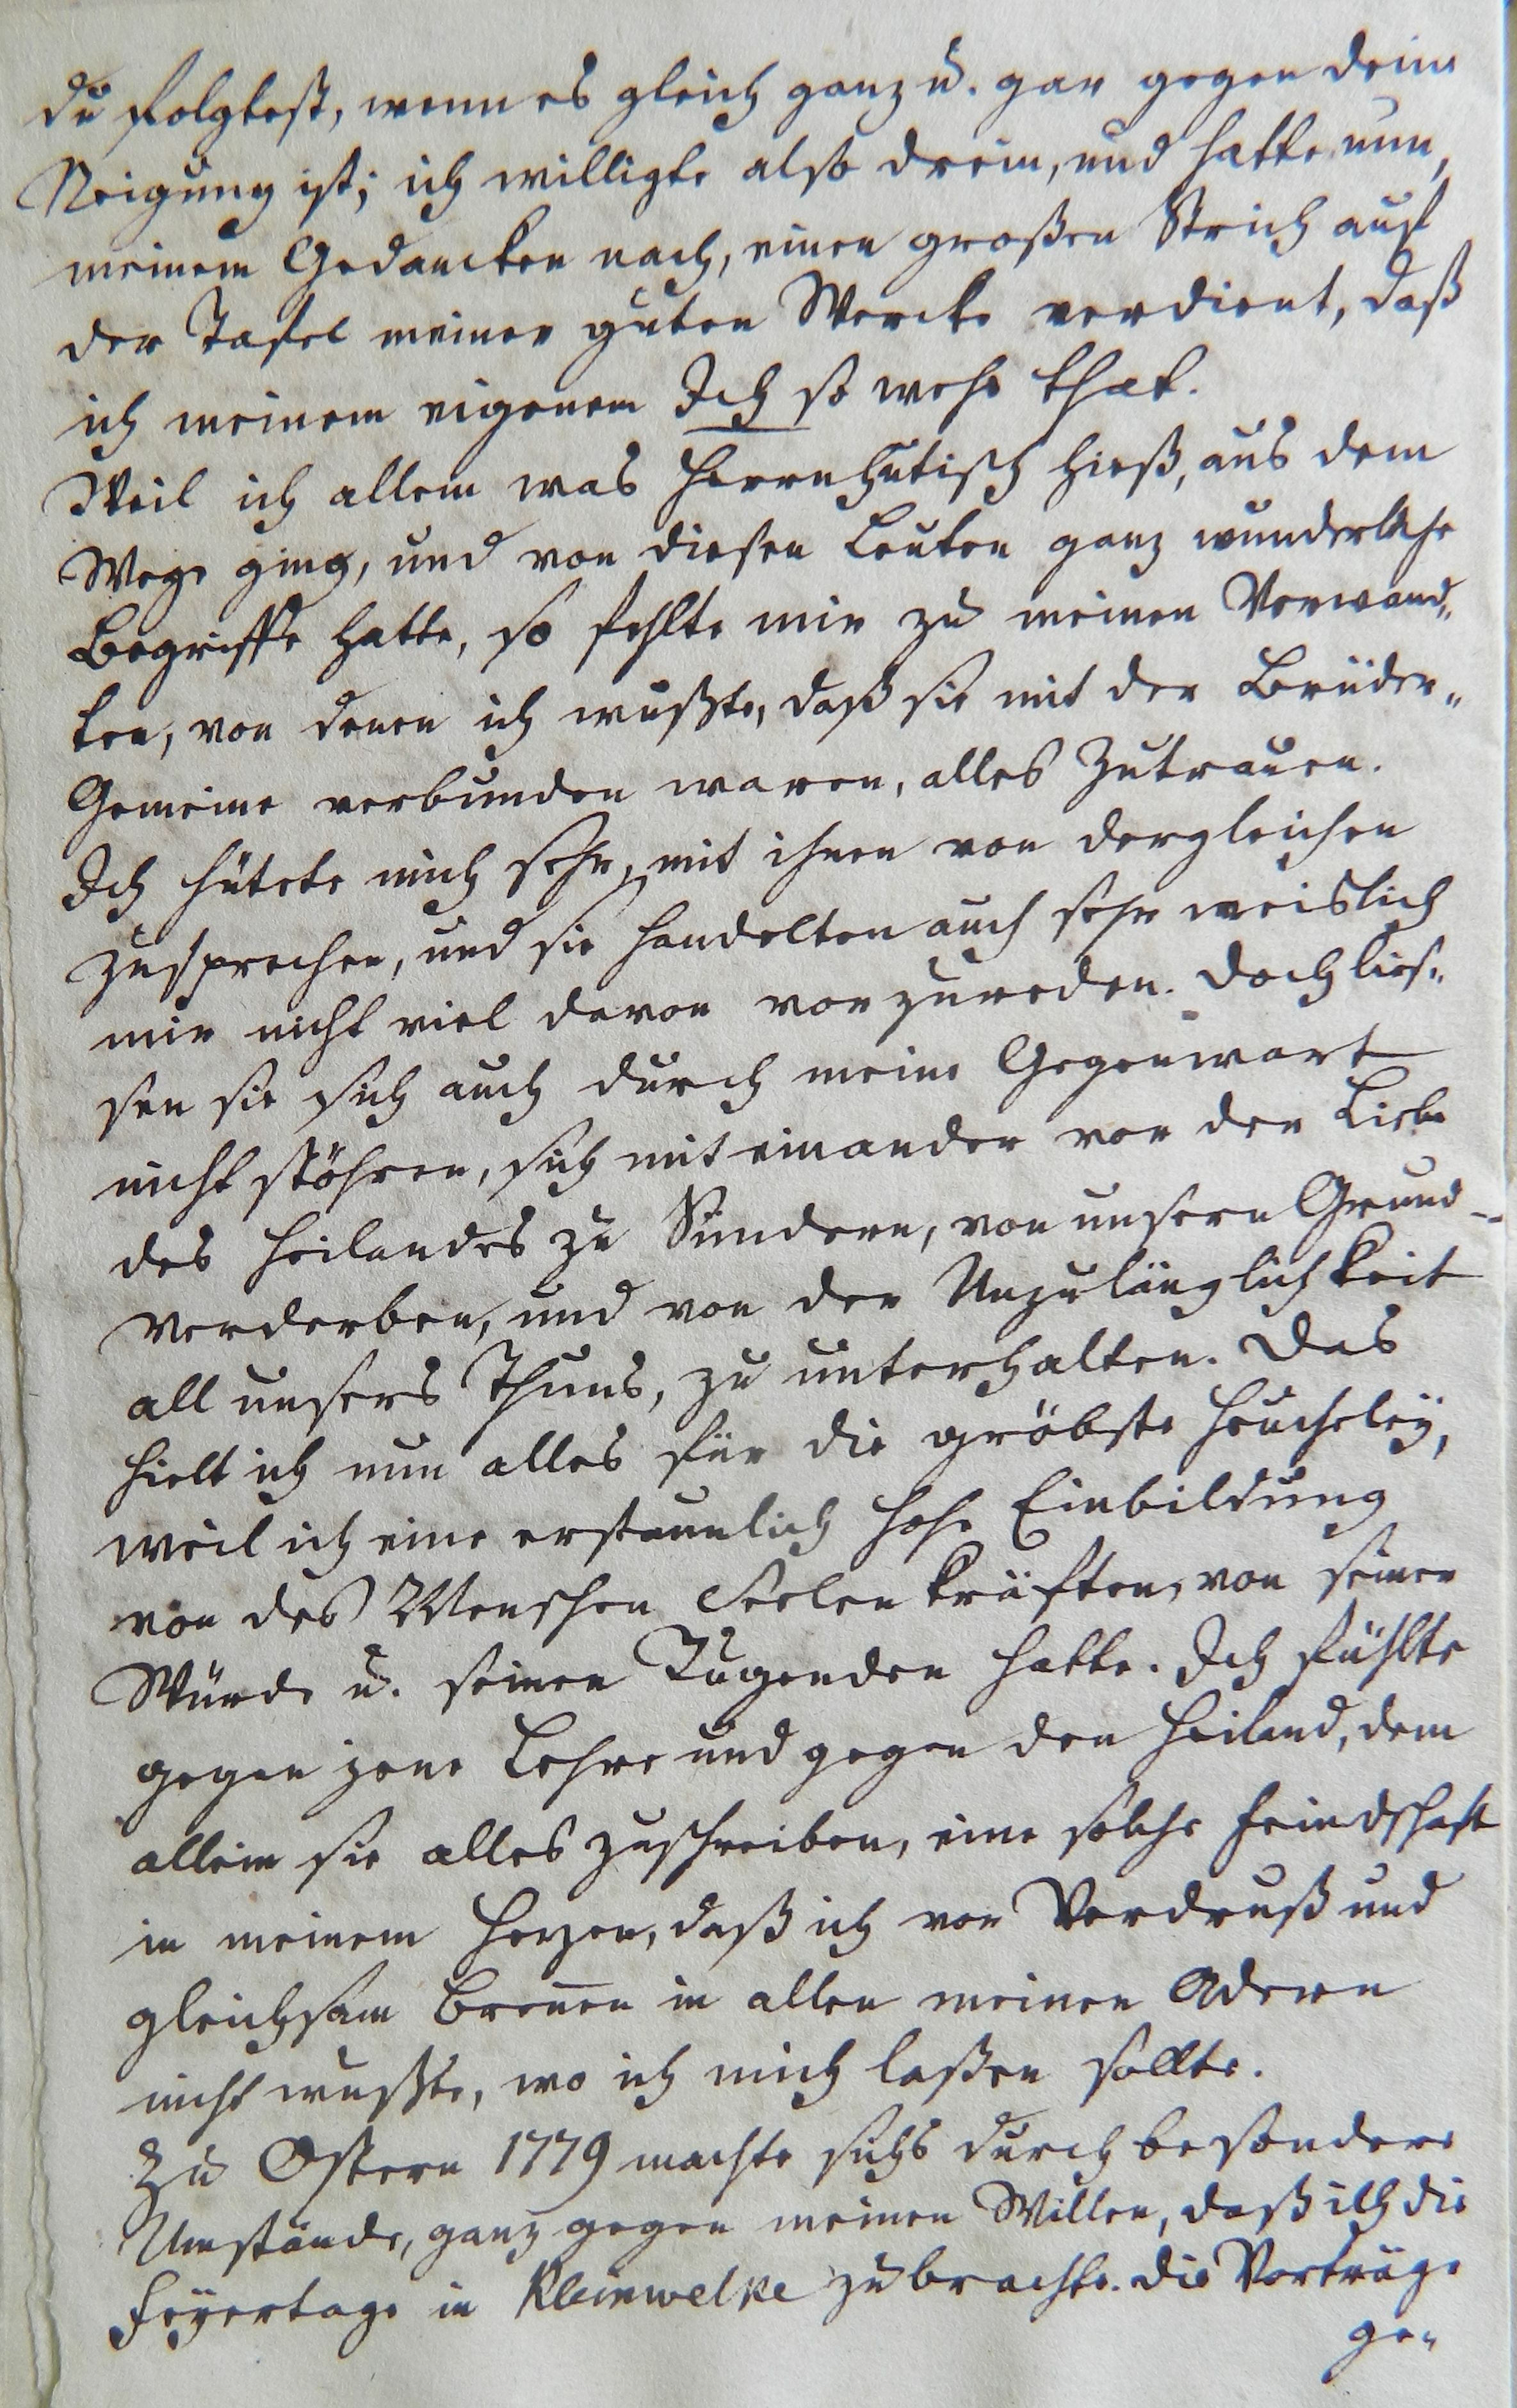 du folgtest, wenn es gleich ganz u. gar gegen deine
Neigung ist; ich willigte also drein, und hatte nun,
meinem Gedancken nach, einen großen Strich auf
der Tafel meiner guten Wercke verdient, daß
ich meinem eigenem Ich so wehe that.
Weil ich allem was Herrnhutisch hieß, aus dem
Wege ging, und von diesen Leuten ganz wunderliche
Begriffe hatte, so fehlte mir zu meinen Verwand„
ten, von denen ich wußte, daß sie mit der Brüder„
Gemeine verbunden waren, alles Zutrauen.
Ich hütete mich sehr, mit ihnen von dergleichen
zu sprechen, und sie handelten auch sehr weislich
mir nicht viel davon vorzureden. Doch lies„
sen sie sich auch durch meine Gegenwart
nicht stöhren, sich mit einander von der Liebe
des Heilandes zu Sündern, von unsern Grund„
verderben, und von der Unzulänglichkeit
all unsers Thuns, zu unterhalten. Das
hielt ich nun alles für die gröbste Heucheleÿ,
weil ich eine erstaunlich hohe Einbildung
von des Menschen Seelenkräften, von seiner
Würde u. seinen Tugenden hatte. Ich fühlte
gegen jene Lehre und gegen den Heiland, dem
allein sie alles zuschreiben, eine solche Feindschaft
in meinem Herzen, daß ich vor Verdruß und
gleichsam Breñen in allen meinen Adern
nicht wußte, wo ich mich laßen sollte.
Zu Ostern 1779 machte sichs durch besondere
Umstände, ganz gegen meinen Willen, daß ich die
Feÿertage in Kleinwelke zubrachte. Die Vorträge
ge„